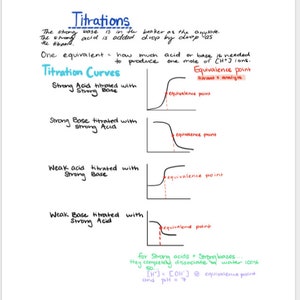 Titrations
The strong base is in the beaker as the analyte.
The strong acid is added drop by drop as
the titrant.
One equivalent = how much acid or base is needed
to produce one mole of [H+] ions.
Titration Curves
Equivalence point
titrant = analyte
Strong Acid titrated with
Strong Base
equivalence point
Strong Base titrated with
Strong Acid
equivalence point
Weak acid titrated with
Strong Base
equivalence point
Weak Base titrated with
Strong Acid
equivalence point
for strong acids + strong bases
they completely dissociate in water
so
[H+] = [OH-] @ equivalence point
and pH = 7